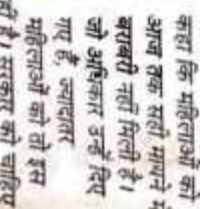 कहा कि महिलाओं को
आज तक सही मायने में
बराबरी नहीं मिली है।
जो अधिकार उन्हें दिए
गए हैं, ज्यादातर
महिलाओं को तो इस
ही है। सरकार को चाहिए